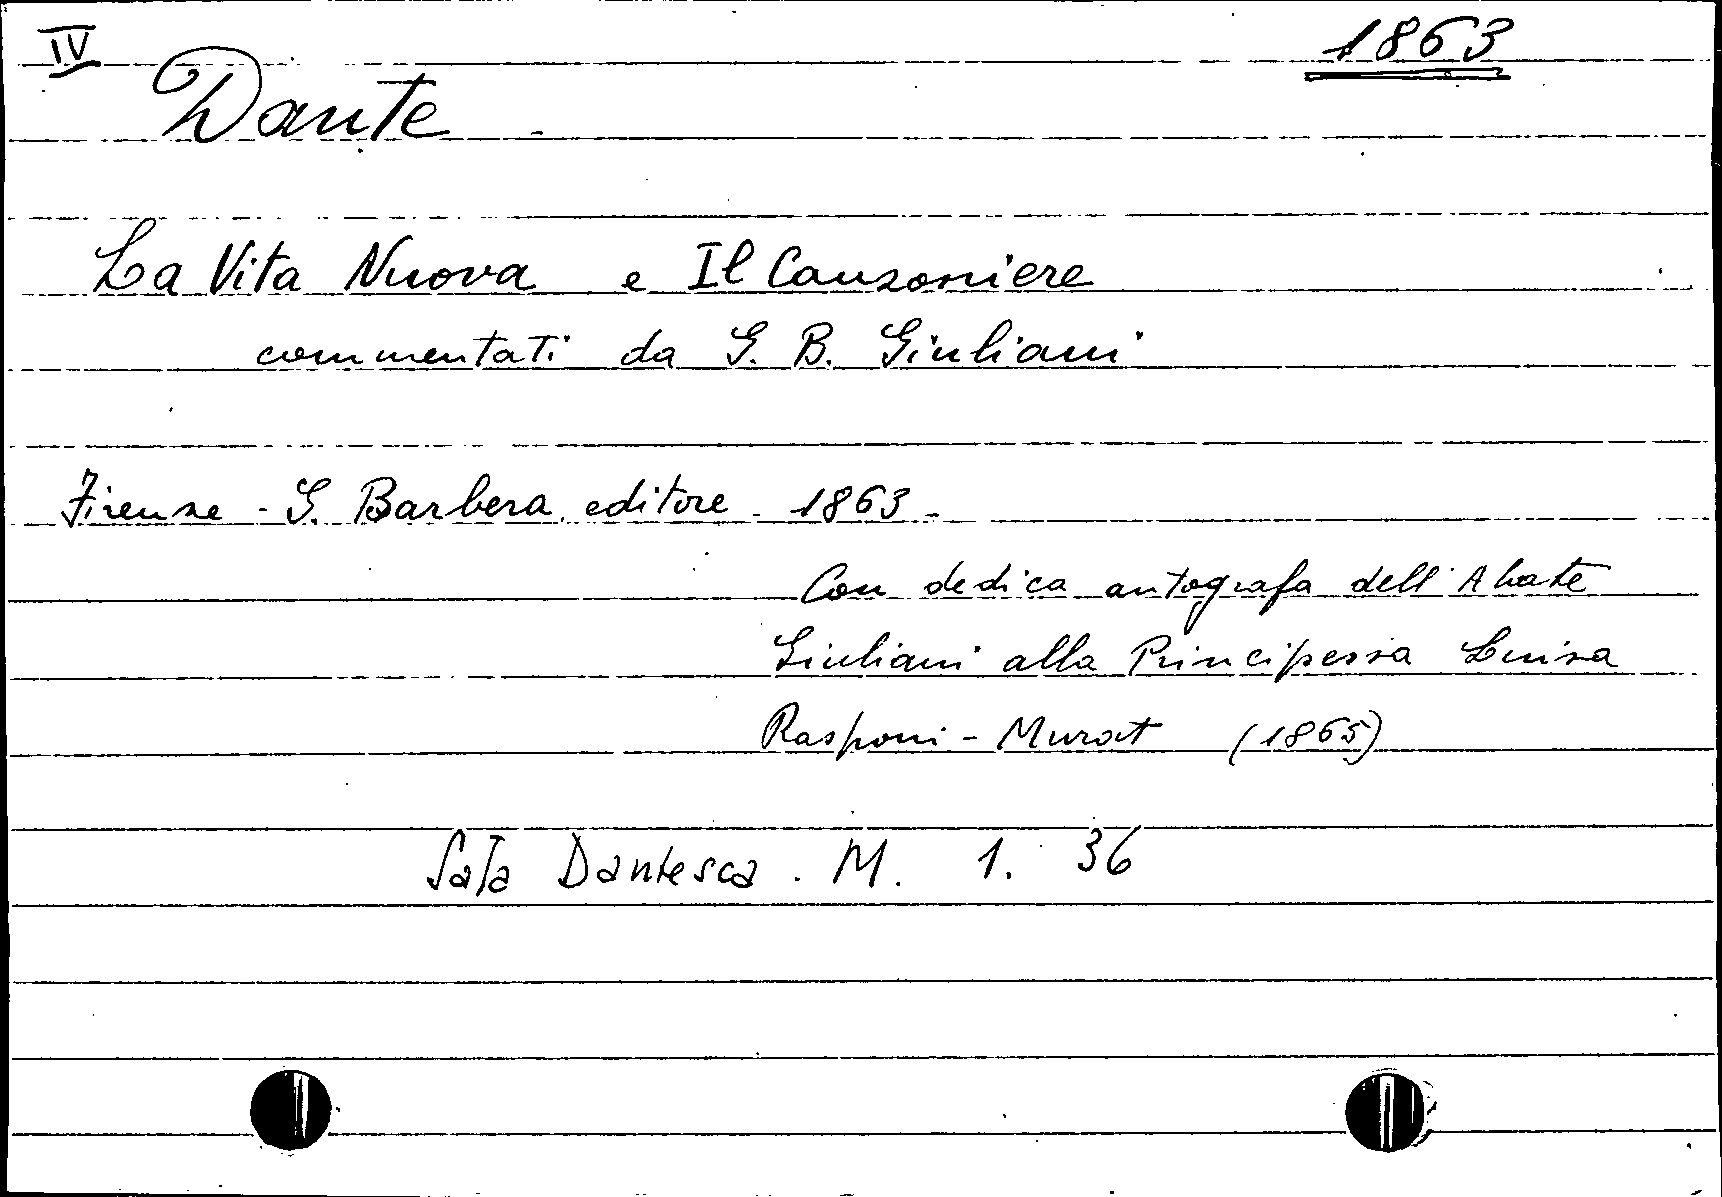 IV 1863
Dante
La Vita Nuova e Il Canzoniere
commentati da G. B. Giuliani
Firenze - G. Barbera editore - 1863 -
Con dedica autografa dell'Abate
Giuliani alla Principessa Luisa
Rasponi - Murat (1865)
Sala Dantesca . M. 1. 36